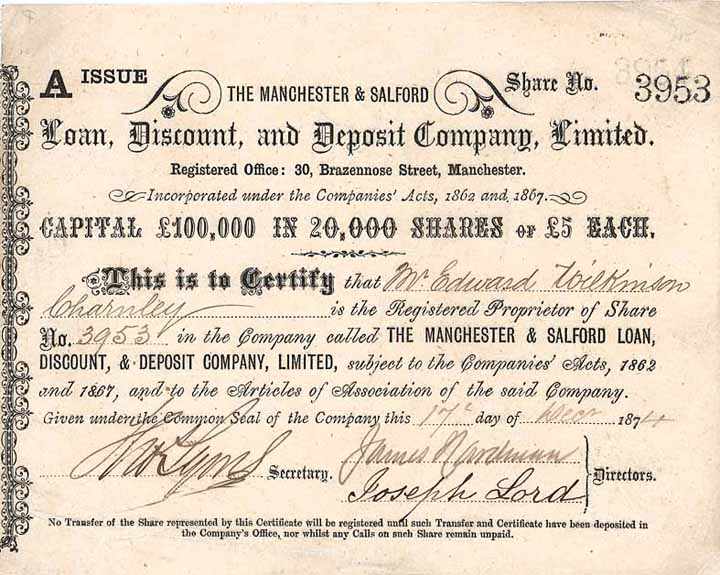 A ISSUE
Share No. 3953
THE MANCHESTER & SALFORD
Loan, Discount, and Deposit Company, Limited.
Registered Office: 30, Brazennose Street, Manchester.
Incorporated under the Companies' Acts, 1862 and 1867.
CAPITAL £100,000 IN 20,000 SHARES OF £5 EACH.
This is to Certify that Mr Edward Wilkinson
Charnley is the Registered Proprietor of Share
No. 3953 in the Company called THE MANCHESTER & SALFORD LOAN,
DISCOUNT, & DEPOSIT COMPANY, LIMITED, subject to the Companies' Acts, 1862
and 1867, and to the Articles of Association of the said Company.
Given under the Common Seal of the Company this 17th day of Decr 1874
James
Secretary.
Joseph Lord
Directors.
No Transfer of the Share represented by this Certificate will be registered until such Transfer and Certificate have been deposited in
the Company's Office, nor whilst any Calls on such Share remain unpaid.